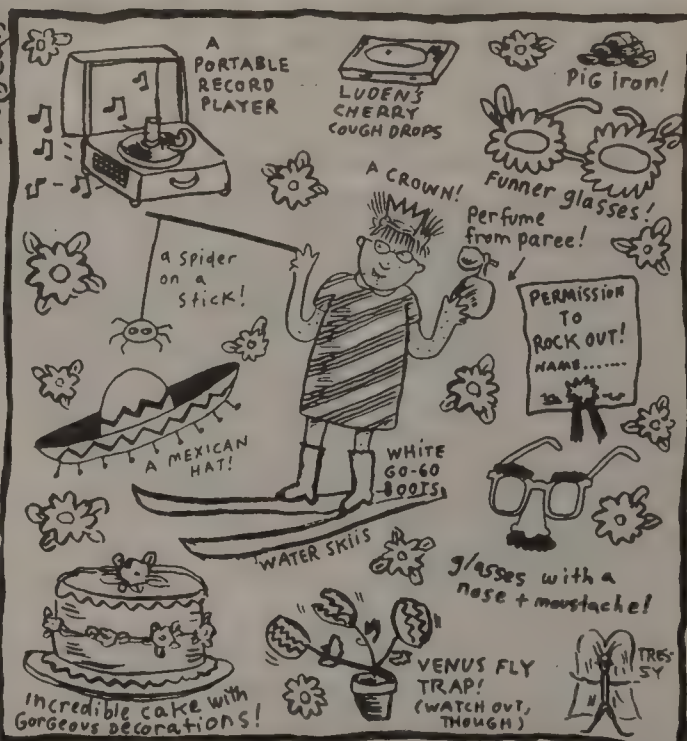 A
PORTABLE
RECORD
PLAYER
LUDEN'S
CHERRY
COUGH DROPS
PIG iron!
Funner glasses!
A CROWN!
Perfume
from paree!
a spider
on a
stick!
PERMISSION
TO
ROCK OUT!
NAME.......
A MEXICAN
HAT!
WHITE
GO-GO
BOOTS
WATER SKIIS
glasses with a
nose + moustache!
Incredible cake with
Gorgeous Decorations!
VENUS FLY
TRAP!
(WATCH OUT,
THOUGH)
TRES-
SY